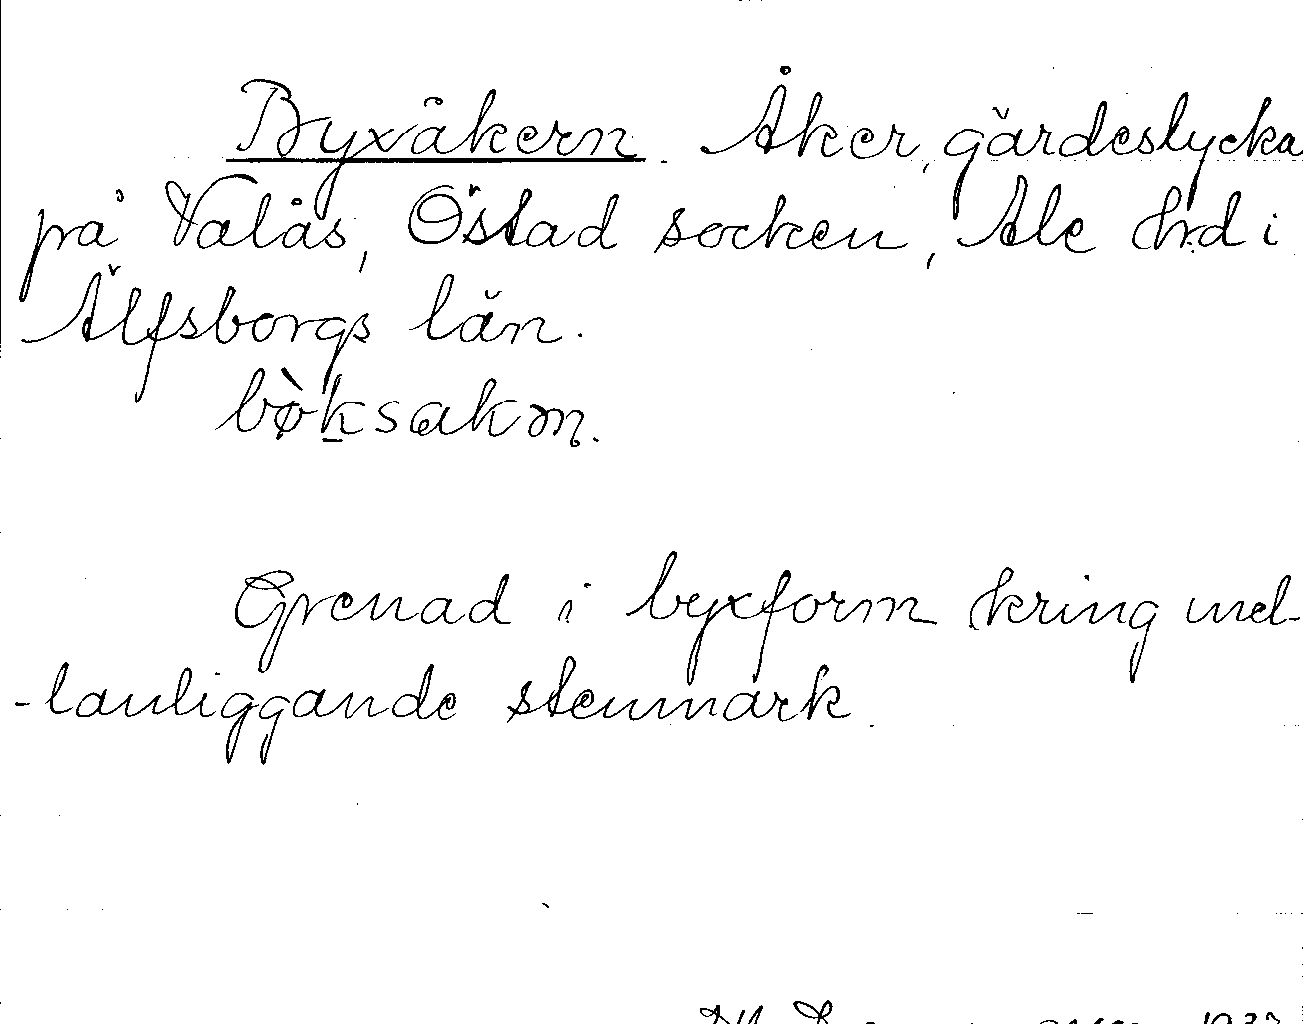 Byxåkern. Åker, gärdeslycka
på Valås, Östad socken, Ale hrd i
Älfsborgs län.
bø̀ksakɷn.
Grenad i byxform kring mel-
-lanliggande stenmark.